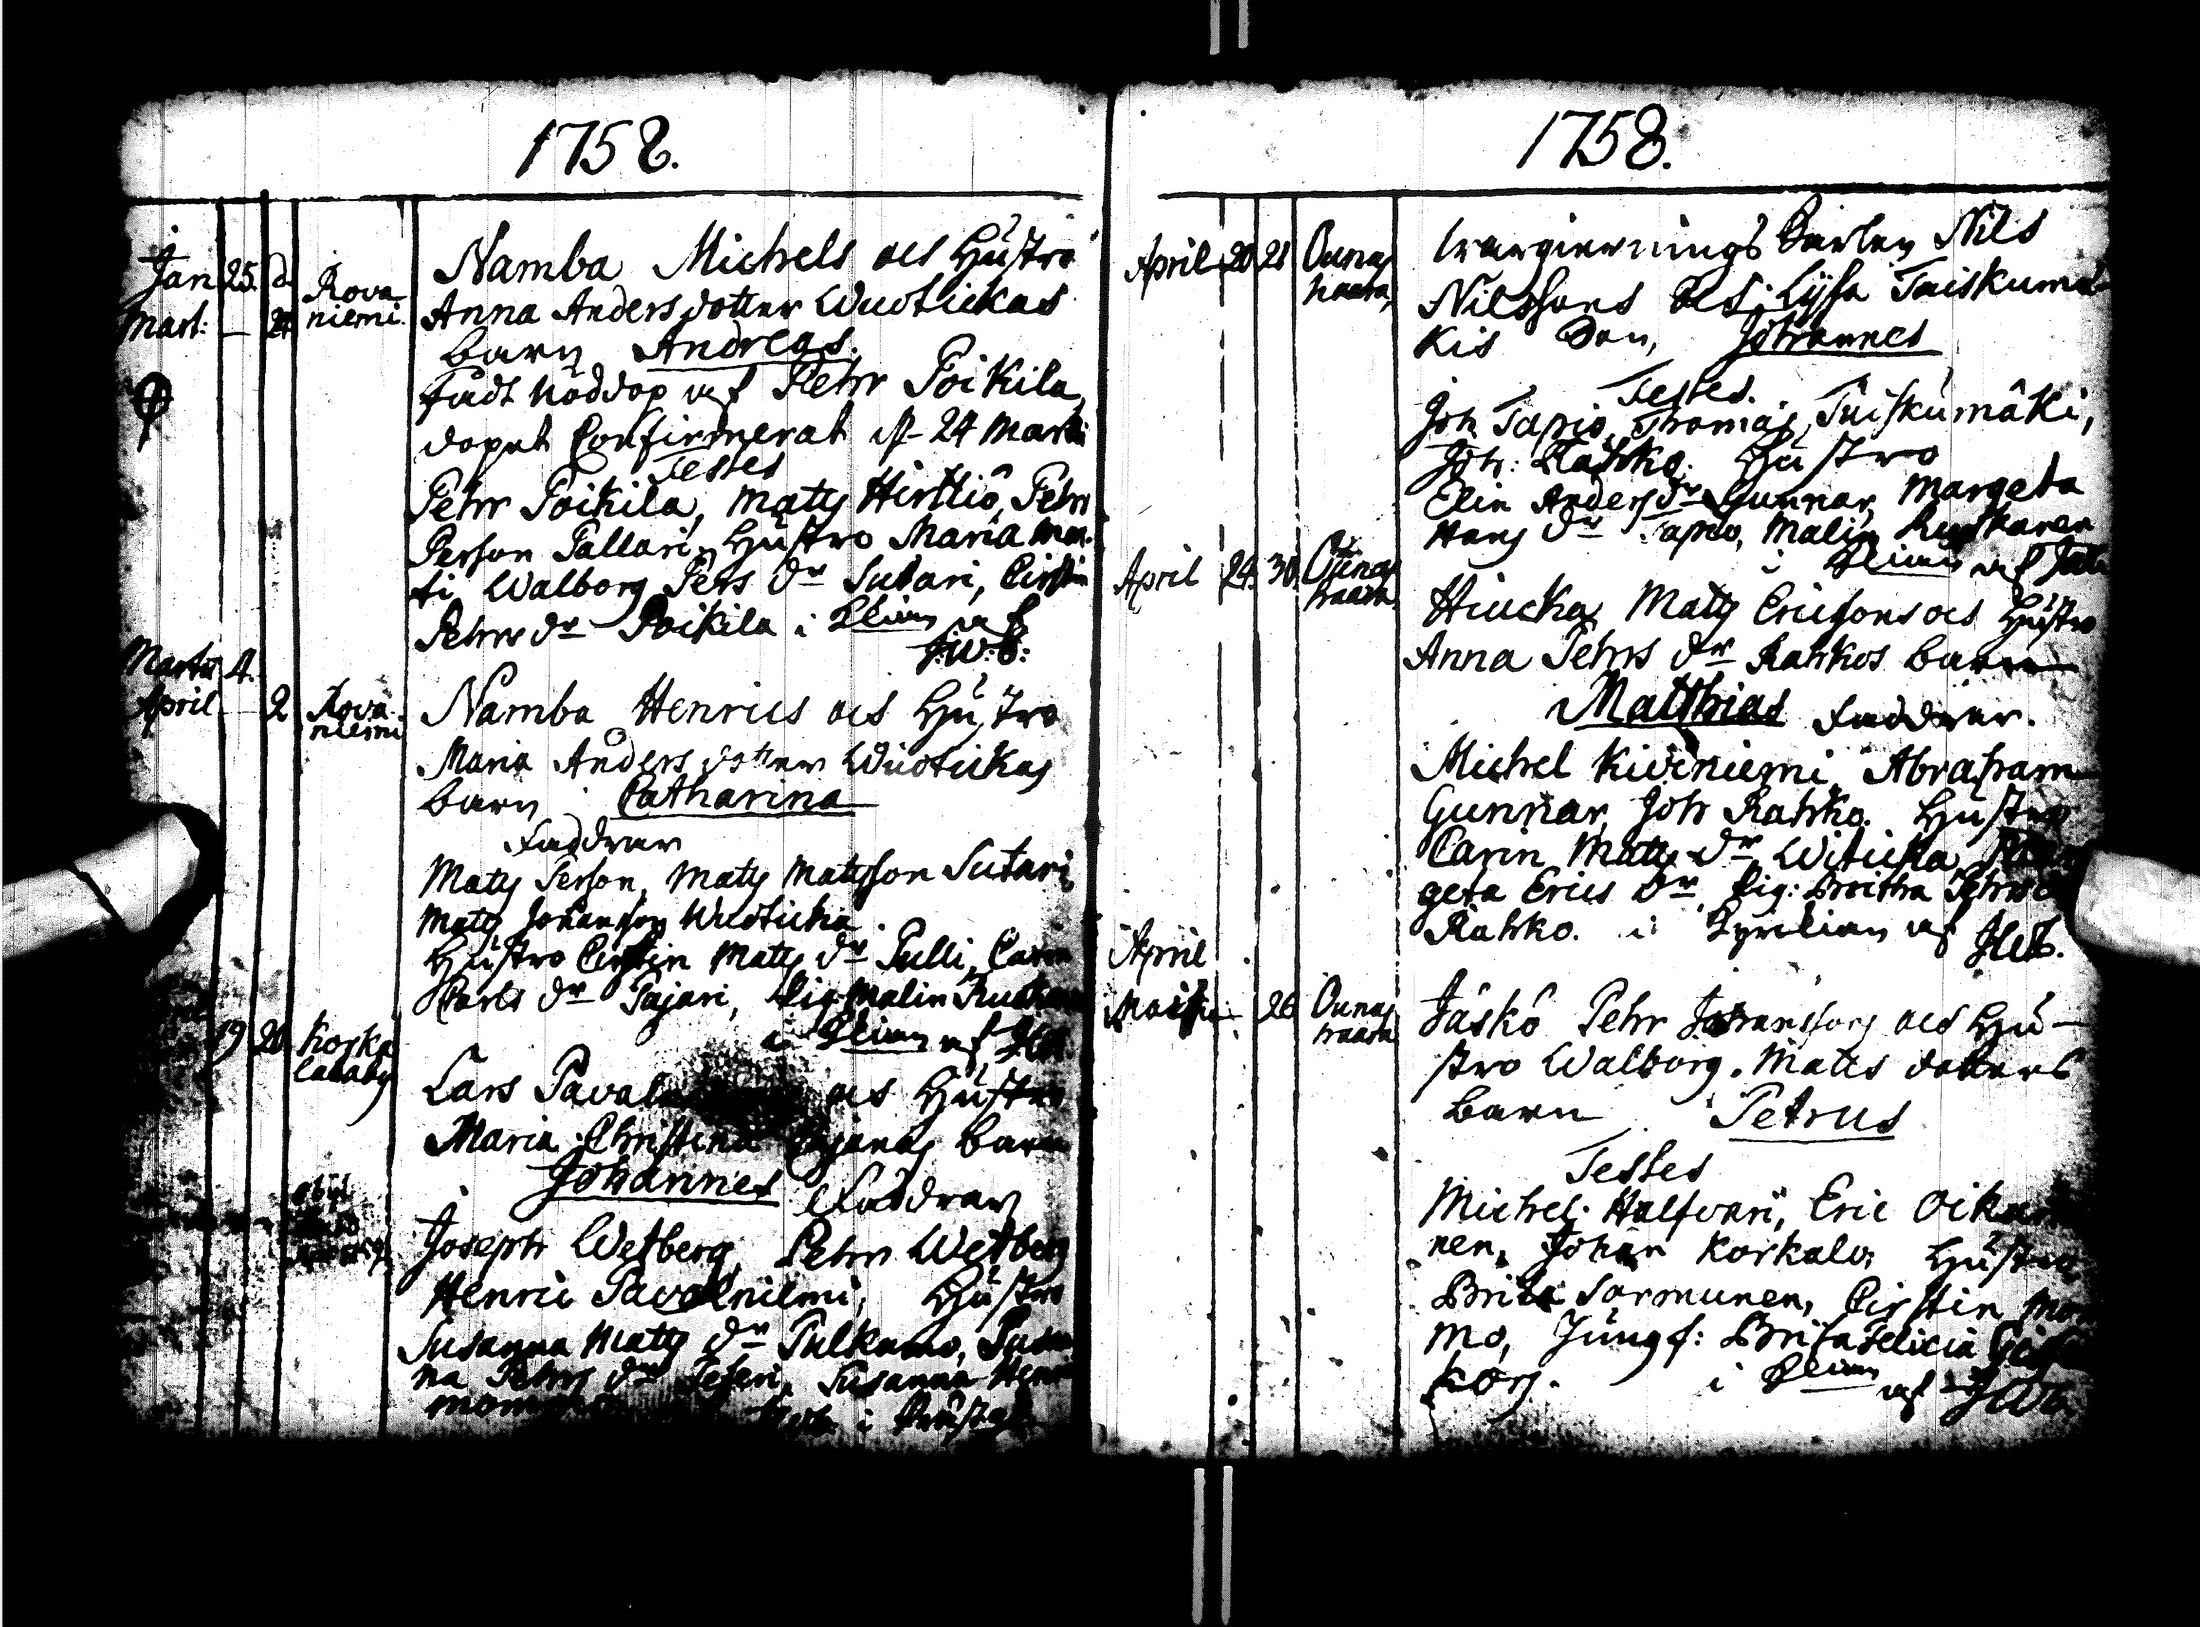 1758.
Jan 25. d.
Mart: — 24
Rova
niemi.
Namba Michels och Hustro
Anna Anders dotter Wuotickas
barn Andreas.
fådt nöddop af Pehr Poikila,
dopet Confirmerat d. 24 Marti
Testes
Pehr Poikila, Mats Hirttiö, Pehr
Person Pallari, Hustro Maria Mar
ti Walborg Pers dr Sutari, Cirstin
Pehrs dr Poikila i af
J:W:B:
Martii 4.
April — 2
Rova
niemi
Namba Henrics och Hustro
Maria Anders dotter Wuotickas
barn Catharina
Faddrar
Mats Person, Mats Matsson Sutari
Mats Johansson Wuoticka.
Hustro Cirstin Mats dr Pulli, Carin
Carls dr Pajari, Pig. Malin
i af
19 20 Korka
laby
Lars och Hustro
Maria Christina barn
Johannes Faddrar
Joseph Wetberg, Pehr Wetberg
Henric Pavalniemi, Hustro
Susanna Mats dr Pulkamo, Susan
na Pehrs dr Susanna Henr
i
1758.
April 20 21 Ounas
waara,
Nils
Nilssons och Lysa Tuiskumä
kis Son, Johannes
Testes.
Joh Tapio, Thomas Tuiskumäki,
Joh: Rahko. Hustro
Elin Anders dr Gunnar, Margeta
Hans dr Tapio, Malin
i af
April 24. 30. Ounas
waara
Hiucka Mats Ericssons och Hustro
Anna Pehrs dr Rahkos barn
Matthias Faddrar.
Michel Kiviniemi, Abraham
Gunnar, Joh Rahko. Hustro
Carin Mats dr Witicka, Mar
geta Erics dr, Pig: Britha Pehrs dr
Rahko. i af
April
Maii — 26 Ounas
waara
Jäskö Pehr Johanssons och Hu-
stro Walborg Mats dotters
barn Petrus
Testes
Michel Halfvari, Eric Oikari
nen, Johan Korkalo, Hustro
Brita Sormunen, Cirstin Mom
mo, Jungf: Brita Felicia
fors. i af JWB.